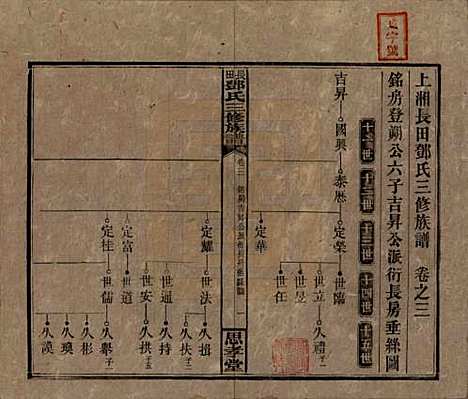 上湘長田鄧氏三修族譜 卷之三
銘房登朝公六子吉昇公派衍長房垂絲圖
十一世 十二世 十三世 十四世 十五世
吉昇 國興 泰歷 定榮 世臨
世立 久禮
世昱
定華 世任
長田鄧氏三修族譜
卷三
思孝堂
定耀 世法 久揖
久扶
世通 久持
世安 久拱
定富 世道
定桂 世儒 久舉
久彬
久瑛
久謨